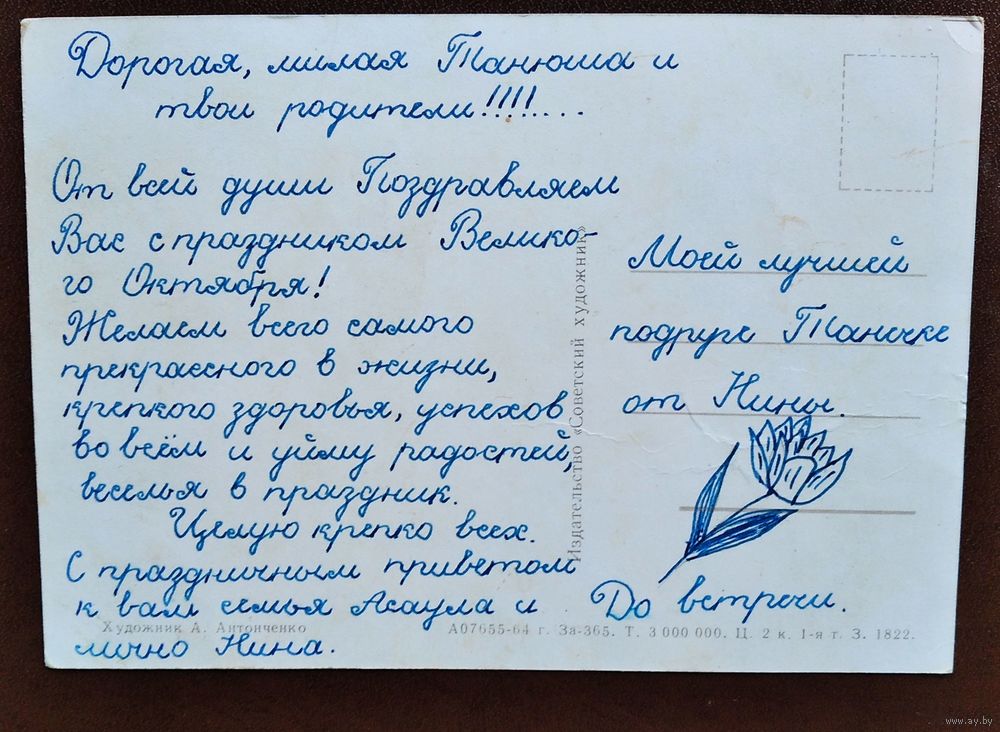 Дорогая, милая Танюша и
твои родители!!!!....
От всей души Поздравляем
Вас с праздником Велико-
го Октября!
Желаем всего самого
прекрасного в жизни,
крепкого здоровья, успехов
во всём и уйму радостей,
веселья в праздник.
Целую крепко всех.
С праздничным приветом
к вам семья Асаула и
лично Нина.
Художник А. Антонченко
Издательство «Советский художник»
Моей лучшей
подруге Танечке
от Нины.
До встречи.
А07655-64 г. За-365. Т. 3 000 000. Ц. 2 к. 1-я т. З. 1822.
www.ay.by